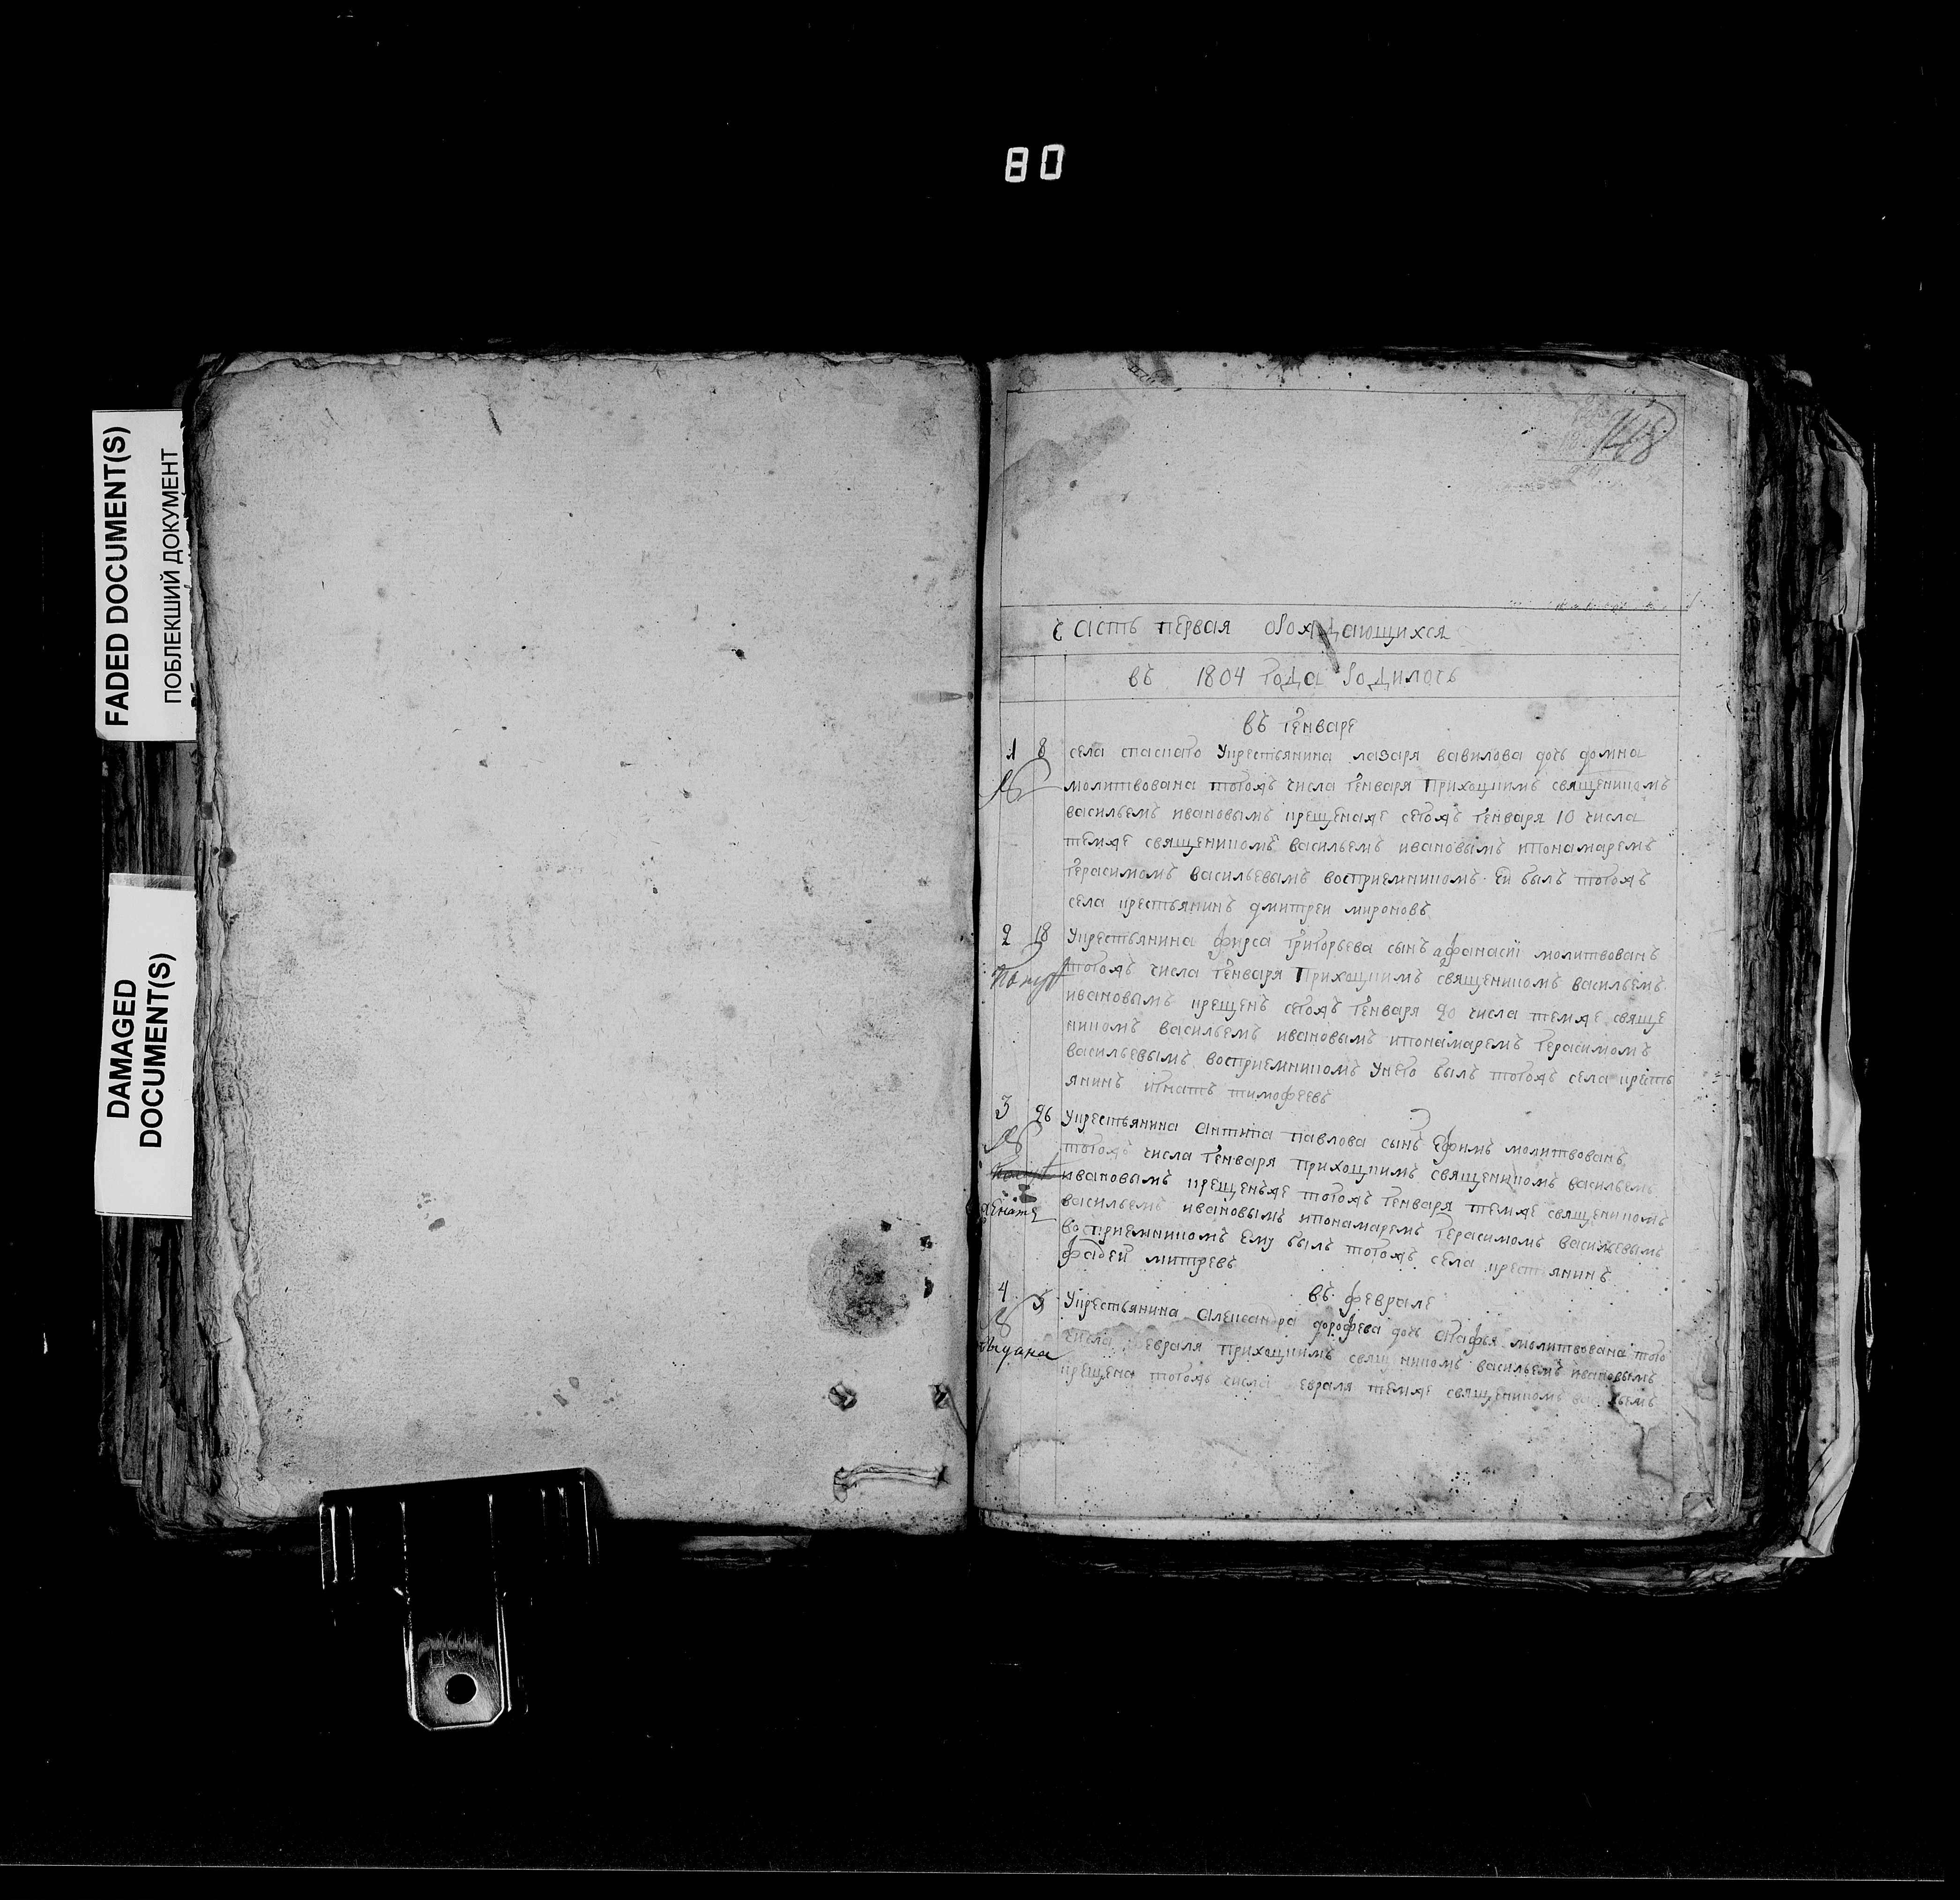 80
FADED DOCUMENT(S)
ПОБЛЕКШИЙ ДОКУМЕНТ
DAMAGED
DOCUMENT(S)
148
часть первая орождающихся
въ 1804 года родилось
въ генваре
1 8 села спаскаго укрестьянина лазаря вавилова дочь домна
молитвована тогожъ числа генваря приходцкимъ священикомъ
васильемъ ивановымъ крещенаже сегожъ генваря 10 числа
темже священикомъ васильемъ ивановымъ ипонамаремъ
герасимомъ васильевымъ восприемникомъ ей былъ тогожъ
села крестьянинъ дмитреи мироновъ
2 18 укрестьянина фирса григорьева сынъ афанасіі молитвованъ
тогожъ числа генваря приходцкимъ священикомъ васильемъ
ивановымъ крещенъ сегожъ генваря 20 числа темже свяще
никомъ васильемъ ивановымъ ипонамаремъ герасимомъ
васильевымъ восприемникомъ унего былъ тогожъ села кресть
янинъ игнатъ тимофеевъ
3 26 укрестьянина антипа павлова сынъ ефимъ молитвованъ
тогожъ числа генваря приходцкимъ священикомъ васильемъ
ивановымъ крещенъже тогожъ генваря темже священикомъ
женатъ
васильемъ ивановымъ ипонамаремъ герасимомъ васильевымъ
восприемникомъ ему былъ тогожъ села крестьянинъ
фадей митревъ
въ феврале
4 5 укрестьянина александра дорофева дочь агафья молитвована того
числа евраля приходцкимъ священикомъ васильемъ ивановымъ
выдана
крещена тогожъ числа евраля темже священикомъ васильемъ